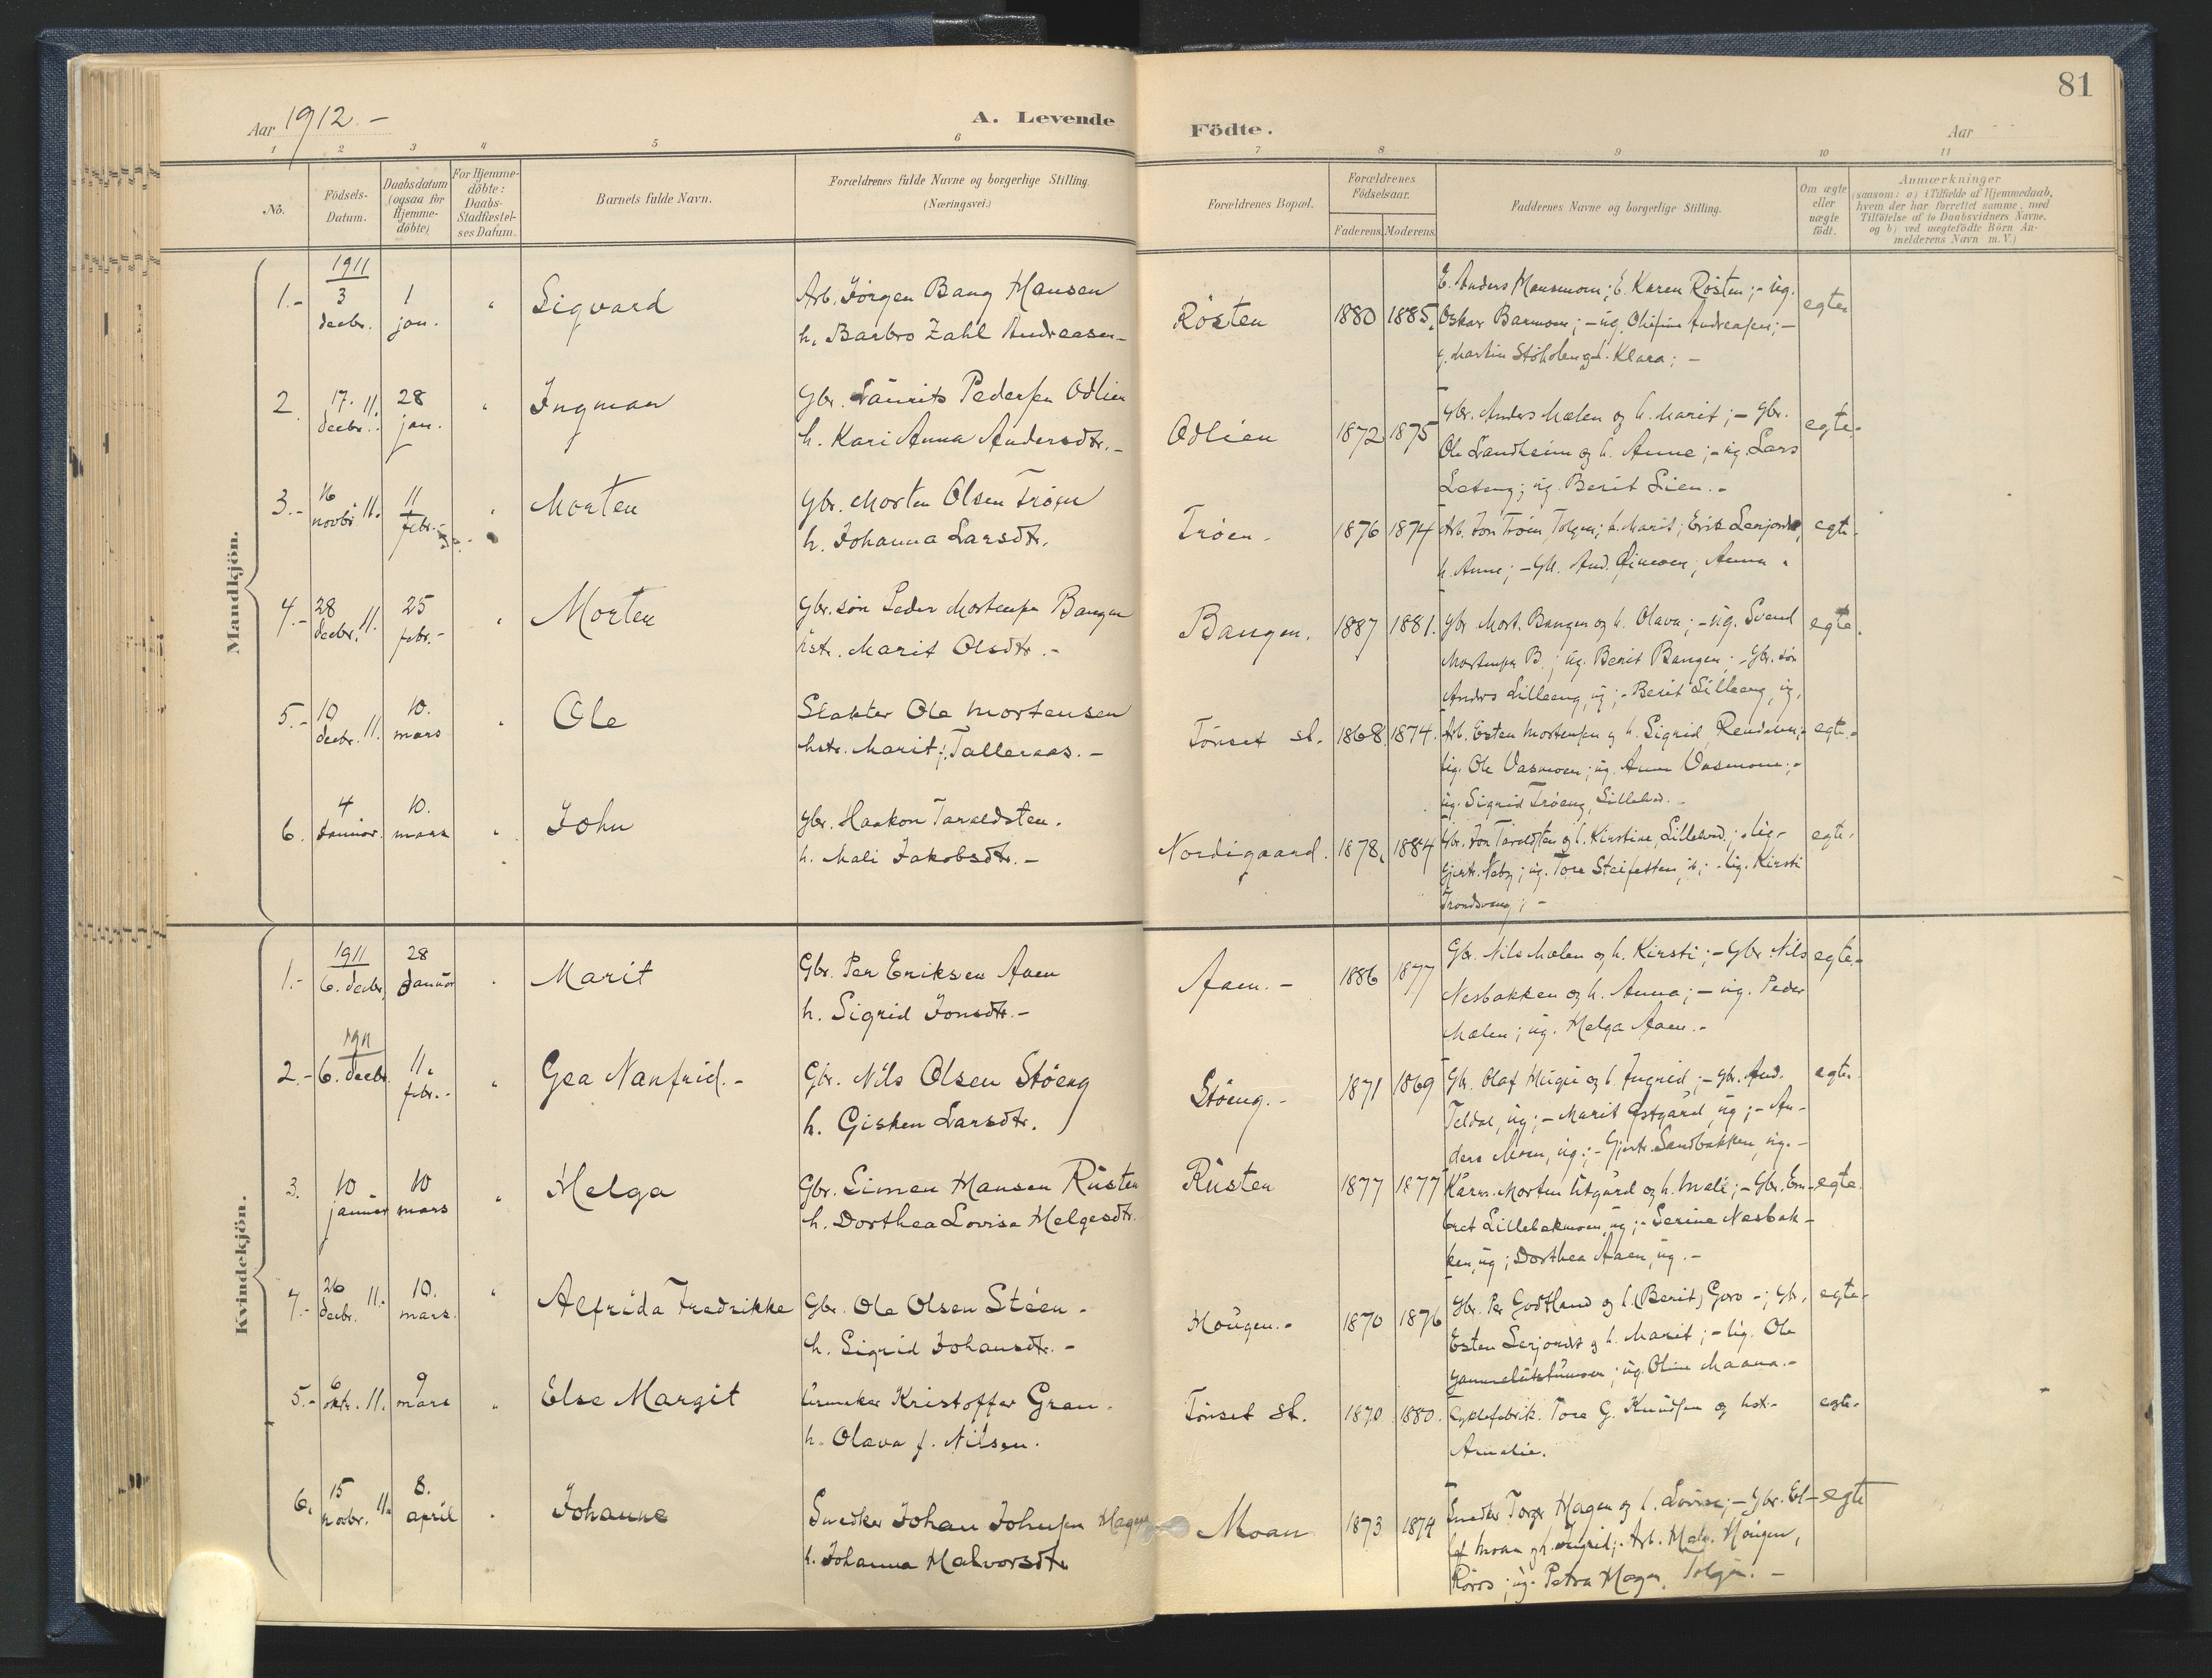 81
Aar 1912.-
A. Levende Födte.
Aar
1 2 3 4 5 6 7 8 9 10 11
No.
Födsels-Datum.
Daabsdatum (ogsaa for Hjemme-döbte)
For Hjemme-döbte: Daabs-Stadfæstel-ses Datum.
Barnets fulde Navn.
Forældrenes fulde Navne og borgerlige Stilling.
(Næringsvei.)
Forældrenes Bopæl.
Forældrenes Födselsaar.
Faderens. Moderens.
Faddernes Navne og borgerlige Stilling.
Om ægte eller uægte födt.
Anmærkninger
(saasom: a) i Tilfælde af Hjemmedaab,
hvem der har forrettet samme, med
Tilföielse af to Daabsvidners Navne,
og b) ved uægtefödte Börn An-
melderens Navn m. V.)
Mandkjön.
1911
1.- 3 decbr. 1 jan. " Sigvard
Arb. Jörgen Bang Hansen
h. Barbro Zahl Andreasen-
Rösten 1880 1885.
E. Anders Mansmoen; E. Karen Rösten; - ug.
Oskar Barmoen; - ug. Olefine Andreasen; -
g. Martin Stöholen g. h. Klara; -
egte
2. 17. decbr. 11. 28 jan. " Ingman
Gbr. Laurits Pedersen Odlien
h. Kari Anna Andersdtr.-
Odlien 1872 1875
Gbr. Anders Mælen og h. Marit; - Gbr.
Ole Sandheim og h. Anne; - ug. Lars
Leteng; ug. Berit Lien.-
egte.
3.- 16 novbr. 11. 11 febr.- " Morten
Gbr. Morten Olsen Tröen
h. Johanna Larsdtr.
Tröen. 1876 1874
Arb. Jon Tröen, Tolgen; h. Marit; Erik Lerjordet,
h. Anne; - Gbr. And. Anna.
egte.
4.- 28 decbr. 11. 25 febr.- " Morten
Gbr. sön Peder Mortensen Bangen
hstr. Marit Olsdtr.-
Bangen. 1887 1881.
Gbr. Mort. Bangen og h. Olava; - ug. Svend
Mortensen B.; ug. Berit Bangen; - Gbr. sön
Anders Lilleeng, ug; - Berit Lilleeng, ug.
egte.
5.- 10 decbr. 11. 10. mars " Ole
Slakter Ole Mortensen
hstr. Marit f. Talleraas.-
Tönset st. 1868. 1874.
Arb. Esten Mortensen og h. Sigrid Rendalen; -
ug. Ole Vasmoen; ug. Anne Vasmoen; -
ug. Sigrid Tröeng, Lilleelved.-
egte.-
6. 4 Januar. 10. mars " John
Gbr. Haakon Taraldsten.
h. Mali Jakobsdtr.-
Nordigaard. 1878. 1884
Gbr. Jon Taraldsten og h. Kirstine, Lilleelved; - ug.
Gjert. Neby; ug. Tore Steifetten, ; - ug. Kirsti
Trondsvang; -
egte.
Kvindekjön.
1911
1.- 6. decbr. 28 Januar " Marit
Gbr. Per Eriksen Aaen
h. Sigrid Jonsdtr.-
Aaen.- 1886 1877
Gbr. Nils Mælen og h. Kirsti; - Gbr. Nils
Nesbakken og h. Anna; - ug. Peder
Mælen; ug. Helga Aaen.-
egte.-
1911
2.- 6. decbr. 11. febr.- " Gea Nanfrid.-
Gbr. Nils Olsen Stöeng
h. Gisken Larsdtr.
Stöeng.- 1871 1869
Gbr. Olaf Hugu og h. Ingrid; - Gbr. And.
Teldal, ug; - Marit Östgård, ug; - An-
ders Moen, ug; - Gjert. Sandbakken, ug.-
egte.
3. 10 januar 10 mars " Helga
Gbr. Simen Hansen Rusten
h. Dorthea Lovise Helgesdtr.
Rusten 1877 1877
Morten Utgård og h. Mali; - Gbr. Em-
bret Lillebakmoen, ug; - Serine Nesbak-
ken, ug; Dorthea Aaen, ug.-
egte.
4.- 26 decbr. 11.- 10. mars. " Alfrida Fredrikke
Gbr. Ole Olsen Stöen.-
h. Sigrid Johansdtr.-
Hougen.- 1870 1876
Gbr. Per Godtland og h. (Berit) Goro -; Gbr.
Esten Lerjordet og h. Marit; - ug. Ole
; ug. Oline Maana.-
egte.
5.- 6 oktr. 11. 9 mars " Else Margit
Urmaker Kristoffer Gran.
h. Olava f. Nilsen.
Tönset st. 1870. 1880.
Cyklefabrik. Tore G. Knudsen og hstr.
Amalie.
egte.
6. 15 novbr. 11. 8. april " Johanne
Snedker Johan Johnsen Hagen
h. Johanna Halvorsdtr
Moan 1873 1874
Snedker Torger Hagen og h. Lovise; - Gbr. El-
lef Moan og h. Ingrid; - Arb. Halv. Hougen,
Röros; ug. Petra Hagen, Tolgen.-
egte